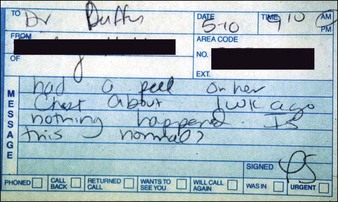 To Dr Duffy
DATE 5-10 TIME 9 10 AM
PM
FROM
AREA CODE
OF
NO.
EXT.
MESSAGE
had a peel on her
Chest About 1 wk ago
nothing happened. Is
this normal?
SIGNED
PHONED CALL BACK RETURNED CALL WANTS TO SEE YOU WILL CALL AGAIN WAS IN URGENT